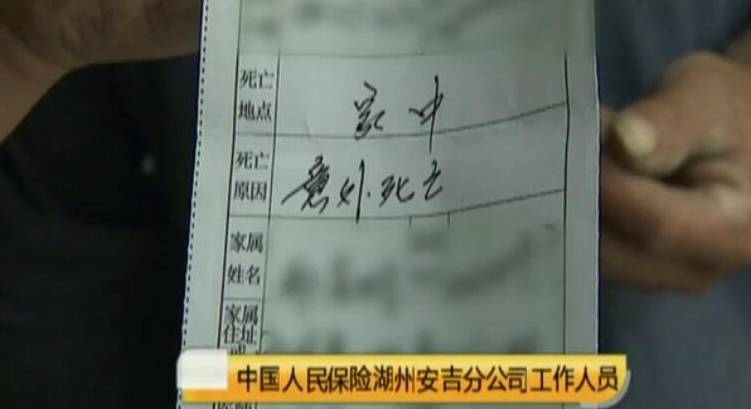 死亡
地点
家中
死亡
原因
意外死亡
家属
姓名
家属
住址
中国人民保险湖州安吉分公司工作人员